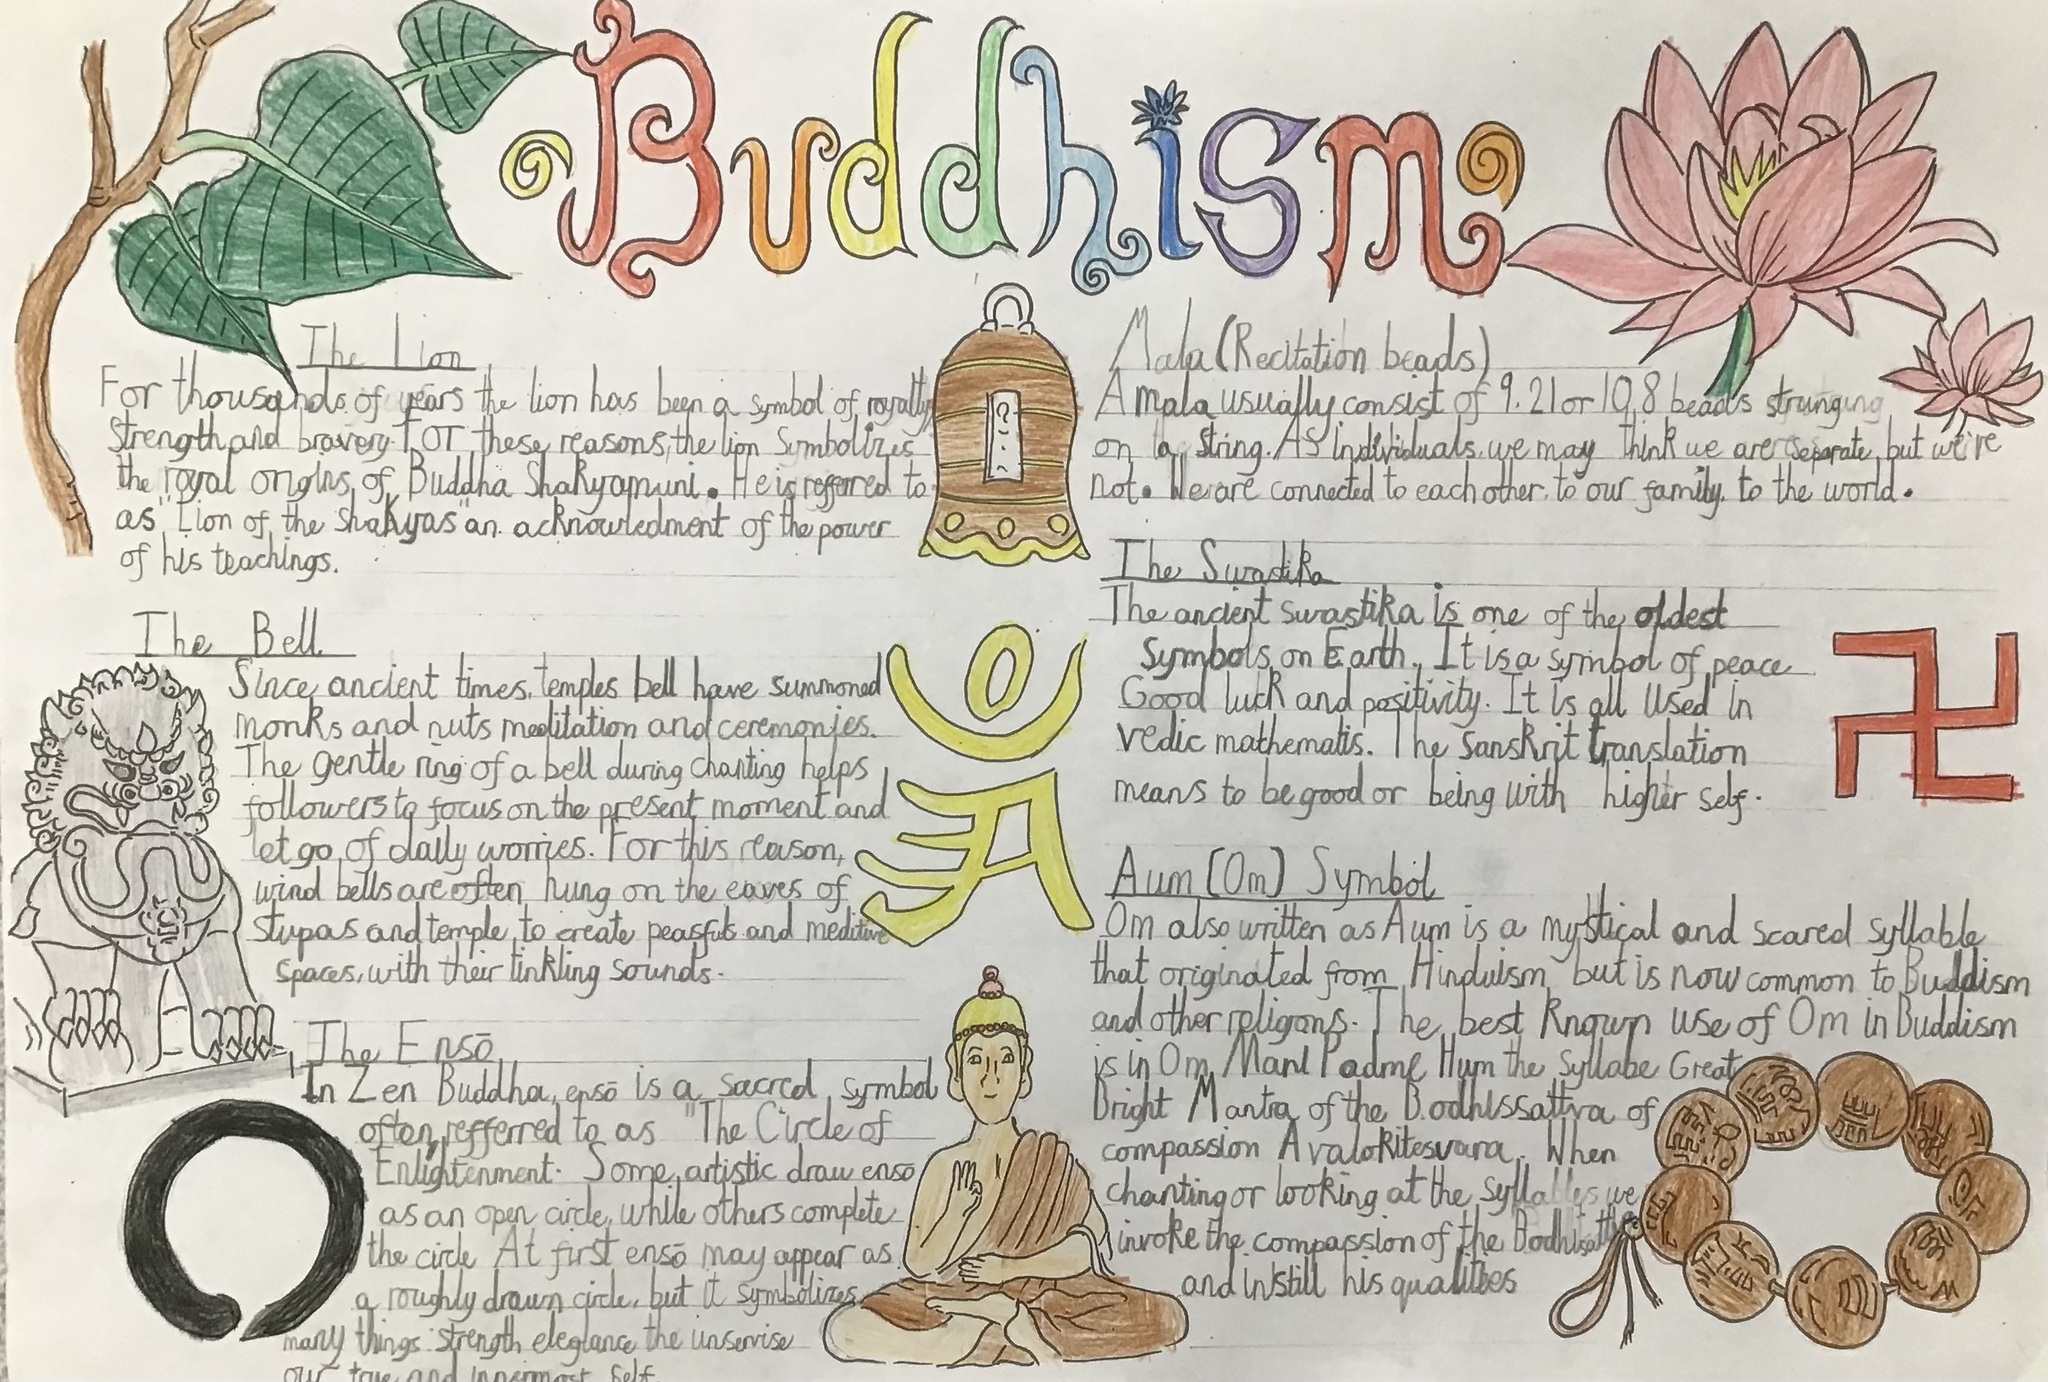 Buddhism
The Lion
For thousands of years the lion has been a symbol of royalty
strength and bravery. For these reasons, the lion Symbolizes
the royal origins of Buddha Shakyamuni. He is refferred to
as "Lion of the Shakyas" an acknowledment of the power
of his teachings.
The Bell
Since ancient times, temples bell have summoned
monks and nuts meditation and ceremonies.
The gentle ring of a bell during chanting helps
followers to focus on the present moment and
let go of daily worries. For this reason,
wind bells are often hung on the eaves of
stupas and temple to create peasfuls and meditive
spaces, with their tinkling sounds.
The Ensō
In Zen Buddha, ensō is a sacred symbol
often refferred to as "The Circle of
Enlightenment. Some artistic draw ensō
as an open circle, while others complete
the circle At first ensō may appear as
a roughly drawn circle, but it symbolizes
many things strength elegance the unservise
our true and innermost self.
Mala (Recitation beads)
A mala usually consist of 9. 21 or 108 beads strunging
on a string. As individuals, we may think we are separate, but we're
not. We are connected to each other, to our family, to the world.
The Swastika
The ancient swastika is one of the oldest
Symbols on Earth. It is a symbol of peace
Good luck and positivity. It is all Used in
vedic mathematis. The Sanskrit translation
means to be good or being with higher self.
Aum (Om) Symbol
Om also written as Aum is a mystical and scared syllable
that originated from Hinduism, but is now common to Buddism
and other religions. The best Known use of Om in Buddism
is in Om Mani Padme Hum the Syllabe Great
Bright Mantra of the Bodhissattva of
compassion Avalokitesvara. When
chanting or looking at the syllables we
invoke the compassion of the Bodhisattva
and instill his qualities